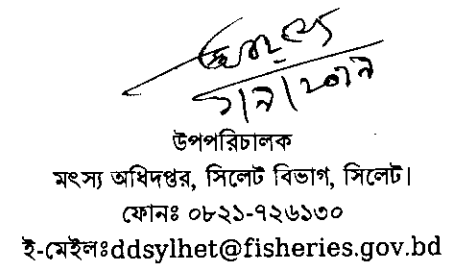 উপপরিচালক
মৎস্য অধিদপ্তর, সিলেট বিভাগ, সিলেট।
ফোনঃ ০৮২১-৭২৬১৩০
ই-মেইলঃddsylhet@fisheries.gov.bd